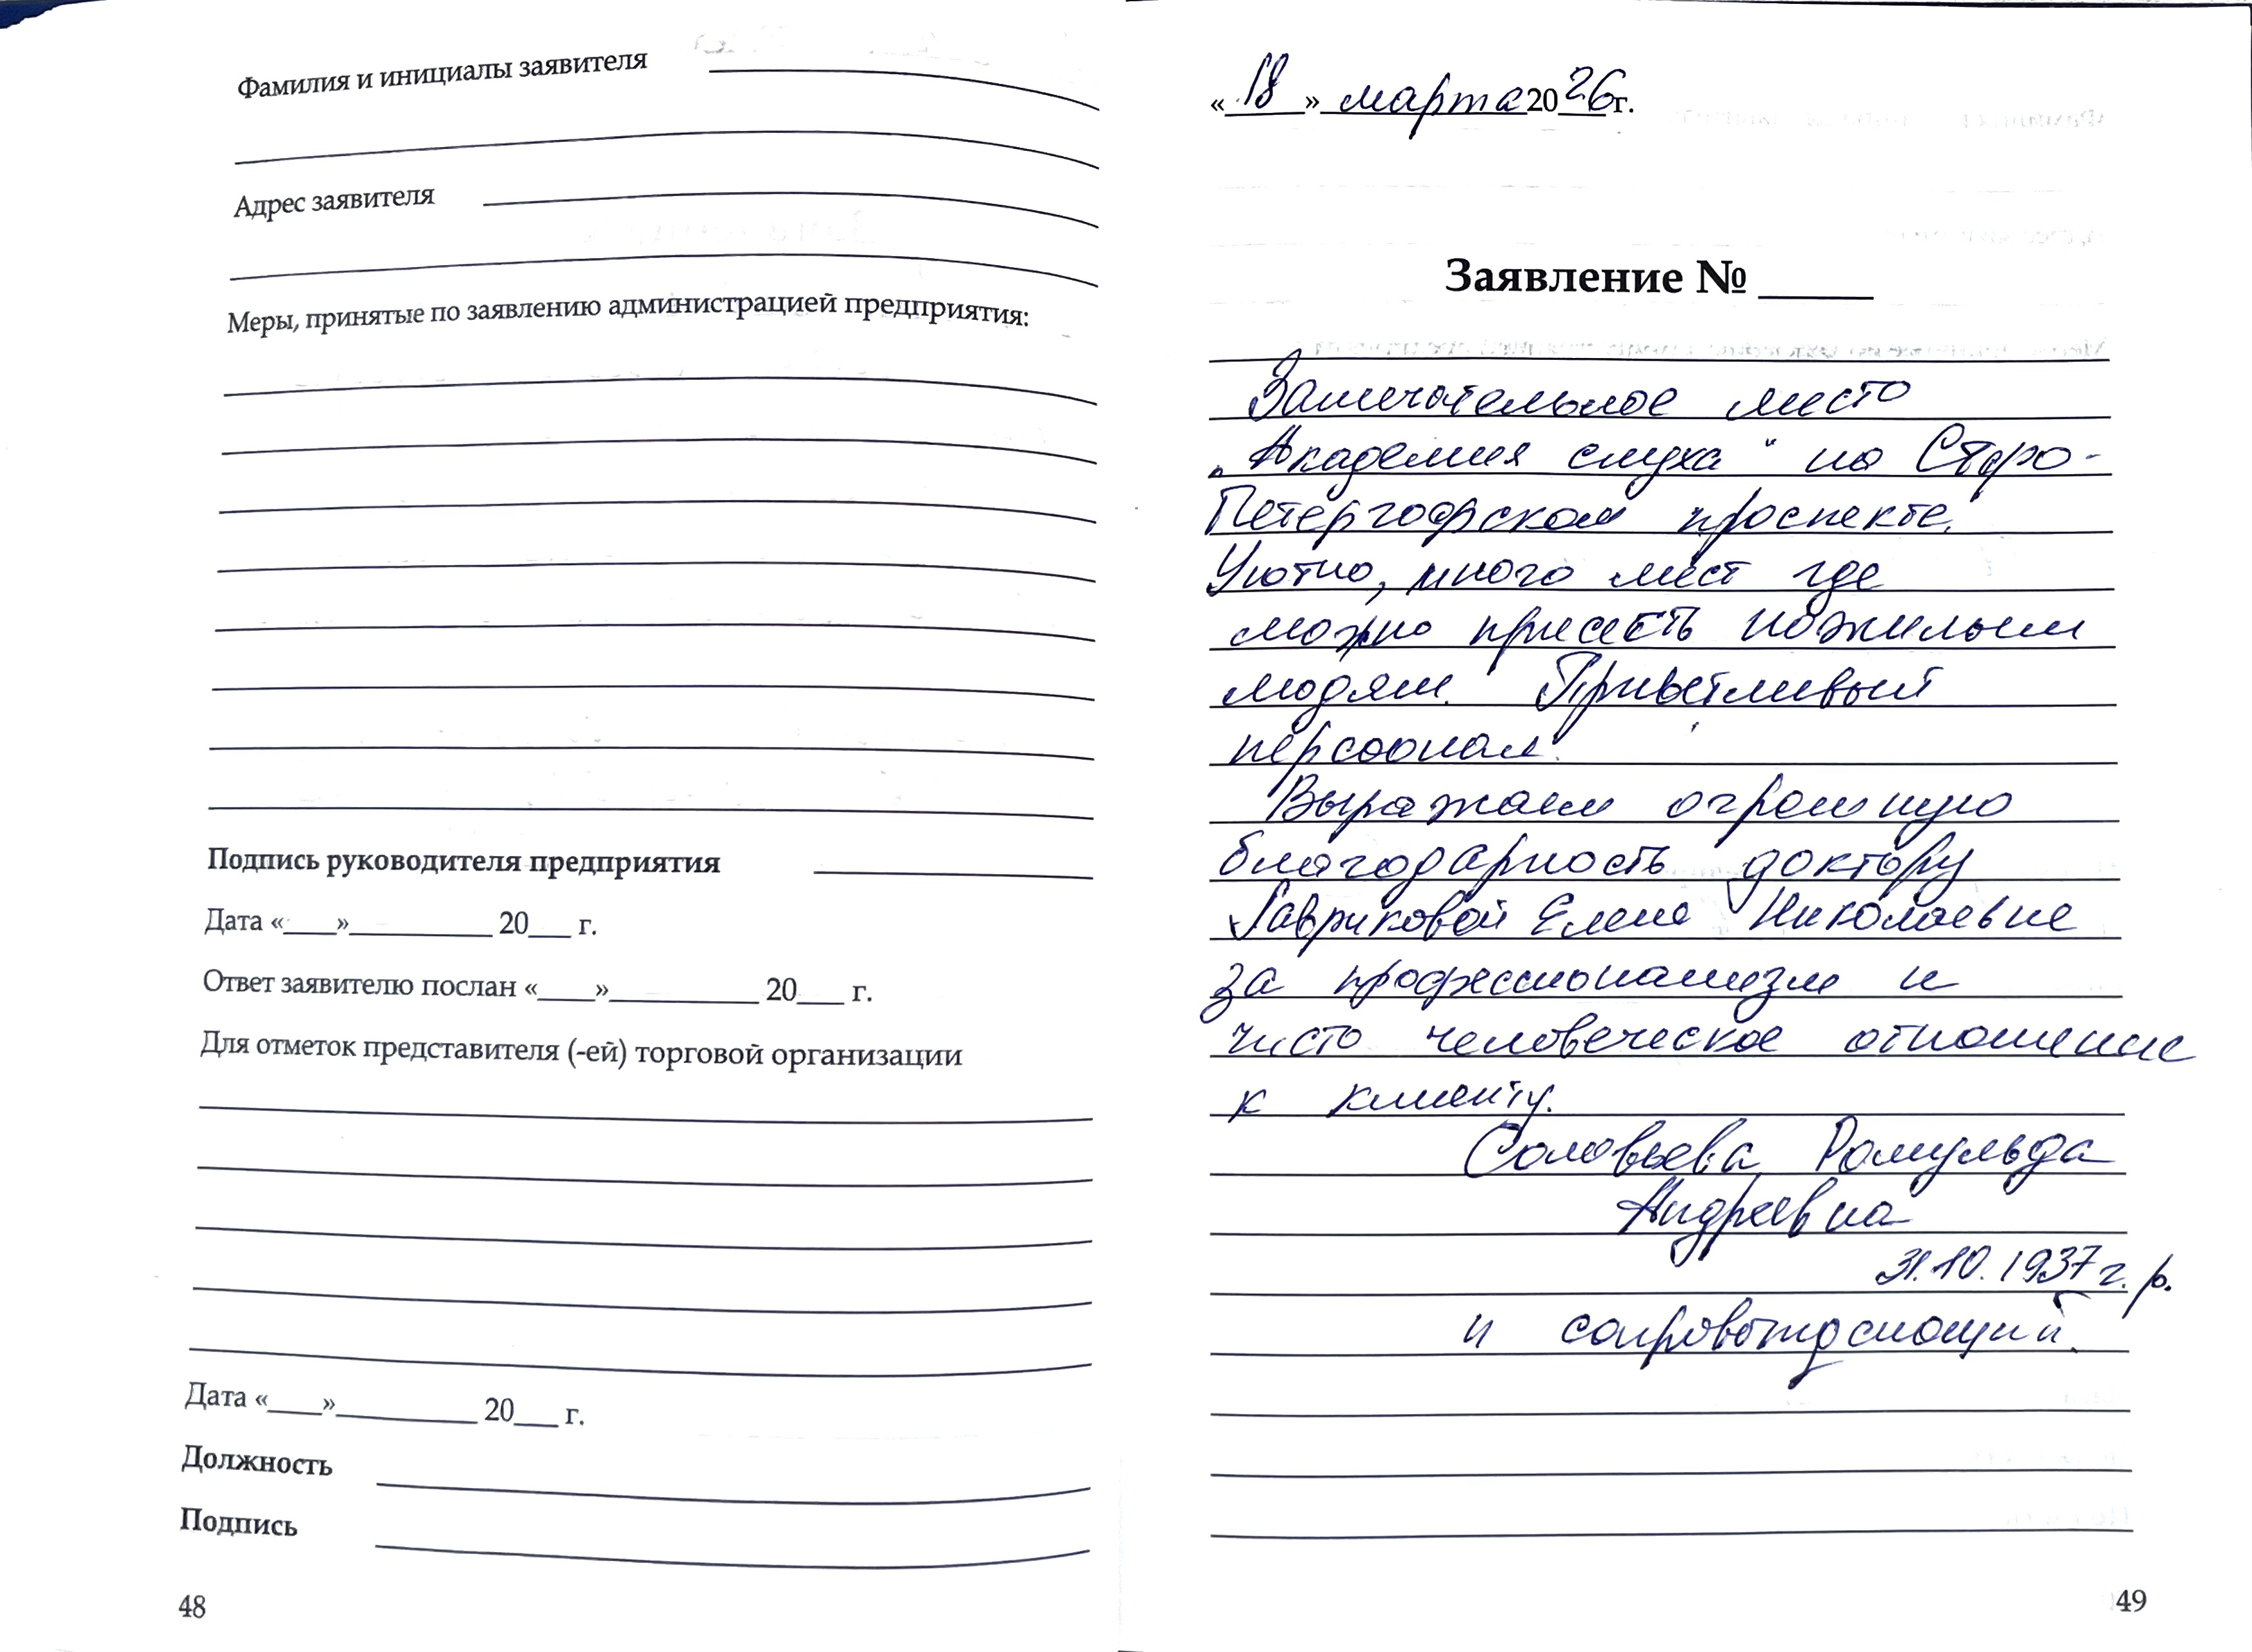 Фамилия и инициалы заявителя
Адрес заявителя
Меры, принятые по заявлению администрацией предприятия:
Подпись руководителя предприятия
Дата «____»__________ 20___ г.
Ответ заявителю послан «____»__________ 20___ г.
Для отметок представителя (-ей) торговой организации
Дата «____»__________ 20___ г.
Должность
Подпись
48
«18» марта 2026г.
Заявление № _____
Замечательное место
„Академия слуха“ на Старо-
Петергофском проспекте.
Уютно, много мест где
можно присесть пожилым
людям. Приветливый
персоонал.
Выражаем огромную
благодарность доктору
Гавриковой Елене Николаевне
за профессионализм и
чисто человеческое отношение
к клиенту.
Соловьева Ромульда
Андреевна
31.10.1937 г.р.
и сопровождающий.
49